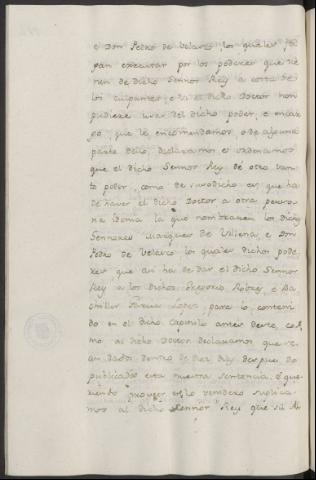 é Don Pedro de Velasco, los quales se
pan executar por los poderes que tie
nen de dicho Sennor Rey à costa de
los culpantes, e si el dicho Doctor non
pudiere usar del dicho poder, e encar
go, que le encomendamos, o de alguna
parte dello, declaramos e ordenamos
que el dicho Sennor Rey dé otro tan
to poder, como de susodicho es, que ha
de haver el dicho Doctor a otra perso
na idonia la que nombraren los dichos
Sennores Marques de Villena, e Don
Pedro de Velasco los quales dichos pode
res, que asi ha de dar el dicho Sennor
Rey a los dichos Pesquisidores, e Ba
chiller Garcia Lopez, para lo conteni
do en el dicho Capitulo antes deste, co
mo al dicho Doctor declaramos que se
an dados dentro de diez dias despues de
publicada esta nuestra sentencia, é que
riendo proveer en lo vendero suplica
mos al dicho Sennor Rey que su Al